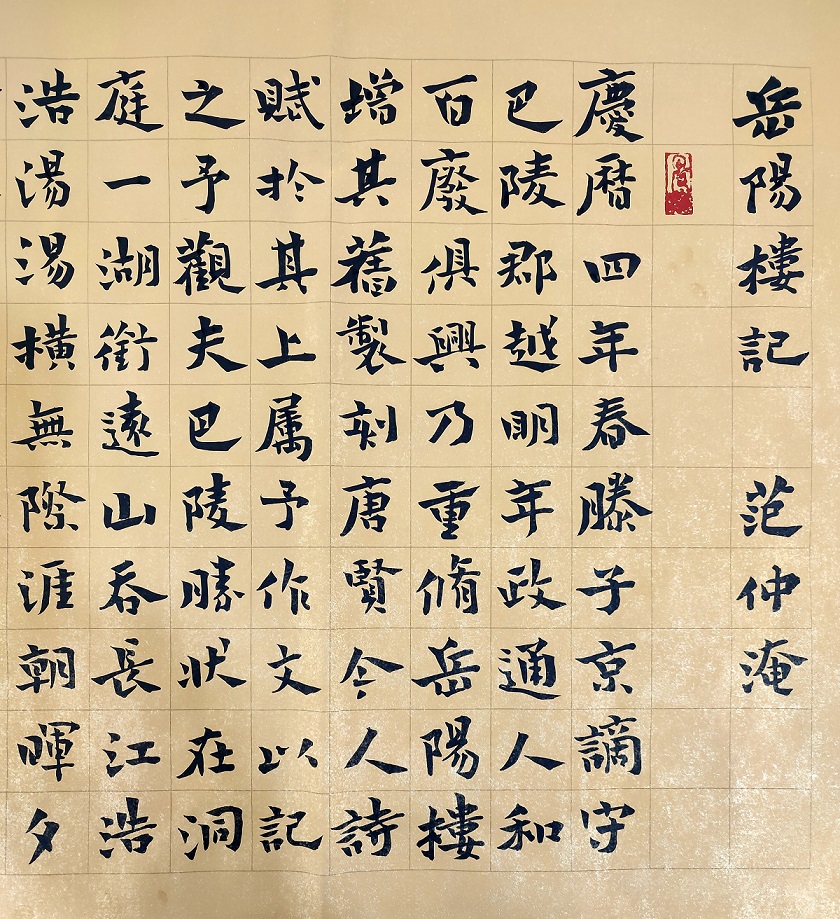 岳陽樓記 范仲淹
慶曆四年春滕子京謫守
巴陵郡越明年政通人和
百廢俱興乃重脩岳陽樓
增其舊製刻唐賢今人詩
賦於其上属予作文以記
之予觀夫巴陵勝狀在洞
庭一湖銜遠山吞長江浩
浩湯湯橫無際涯朝暉夕